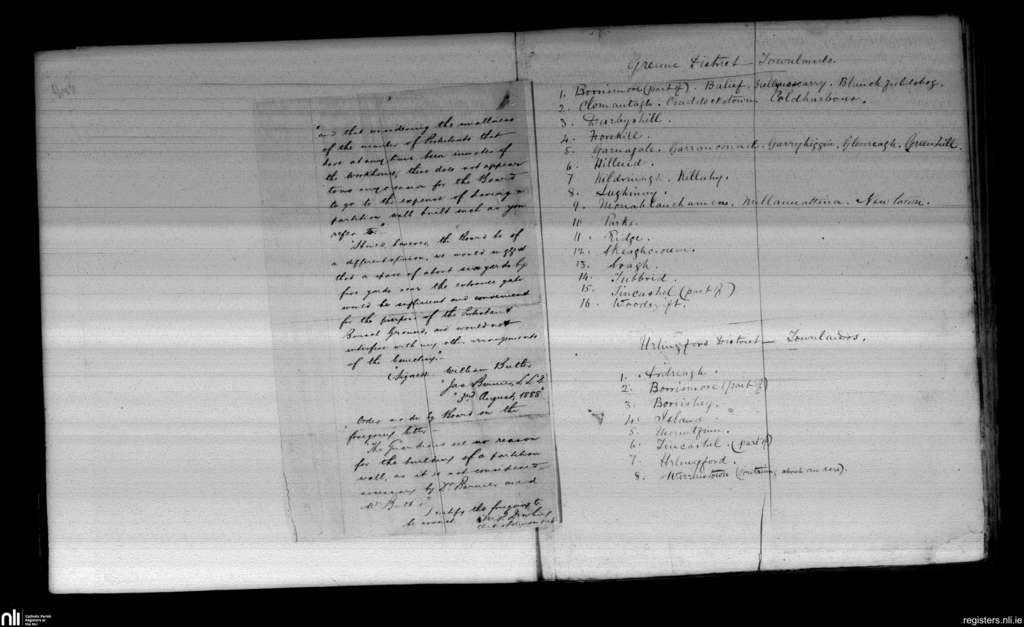 "and that considering the smallness
of the number of Protestants that
have at any time been inmates of
the Workhouse, there does not appear
to us any reason for the Board
to go to the expense of having a
partition wall built such as you
refer to."
"Should, however, the Board be of
a different opinion, we would suggest
that a space of about six yards by
five yards near the entrance gate
would be sufficient and convenient
for the purpose of the Protestant
Burial Ground, and would not
interfere with any other arrangements
of the Cemetery."
(Signed) William Butler
" Jas Bourke, L.L.D.
"3rd August, 1888"
Order made by Board on the
foregoing letter —
"The Guardians see no reason
for the building of a partition
wall, as it is not considered
necessary by Dr and
Mr Butler."
I certify the foregoing to
be correct
Greune District — Townlands.
1. Borrismore (part of). Balief. Ballynascarry. Blanchfieldsbog.
2. Clomantagh. Craddockstown. Coldharbour.
3. Darbyshill.
4. Foxhill.
5. Garnagale. Garranconnell. Garryhiggin. Glenreagh. Greenhill.
6. Hilland.
7. Kildrinagh. Killahy.
8. Lughinny.
9. Newtown.
10. Parks.
11. Ridge.
12.
13. Seagh.
14. Tubbrid.
15. Tincashel (part of)
16. Woodsgift.
Urlingford District — Townlands.
1. Ardreagh.
2. Borrismore (part of)
3. Borrisbeg.
4. Island
5. Mountfinn.
6. Tincashel. (part of)
7. Urlingford.
8. Warrenstown
nli
Catholic Parish
Registers at
the NLI
registers.nli.ie